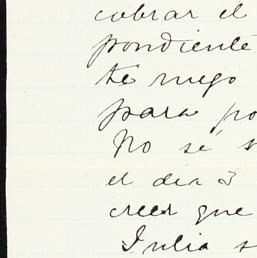 cobrar el
pondiente
te ruego
para po
No sé s
el dia 3
creer que
Julia s